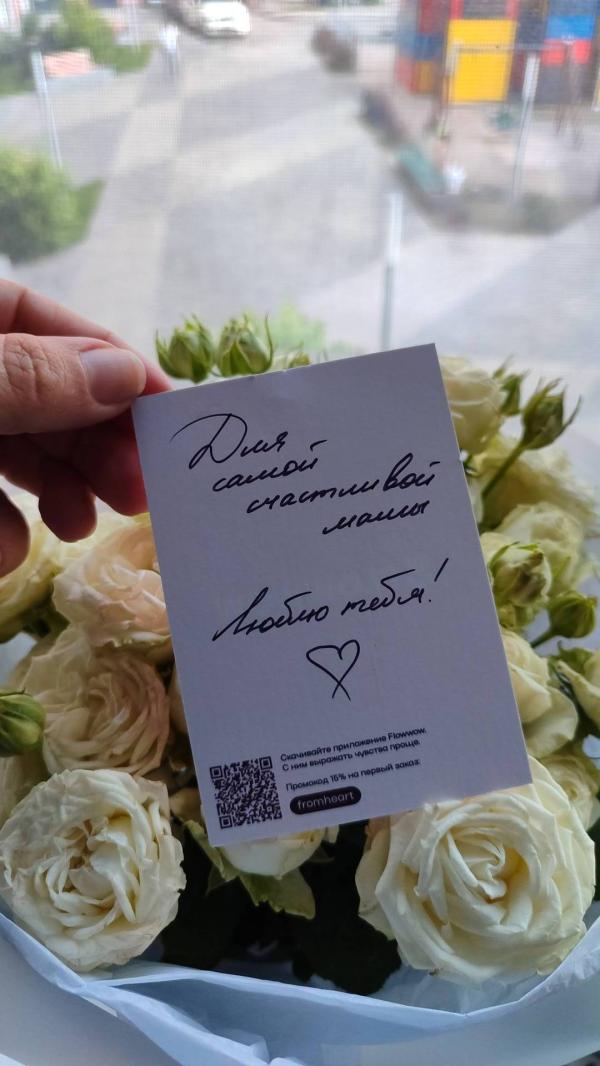 Для
самой
счастливой
мамы
Люблю тебя!
Скачивайте приложение Flowwow.
С ним выражать чувства проще.
Промокод 15% на первый заказ:
fromheart